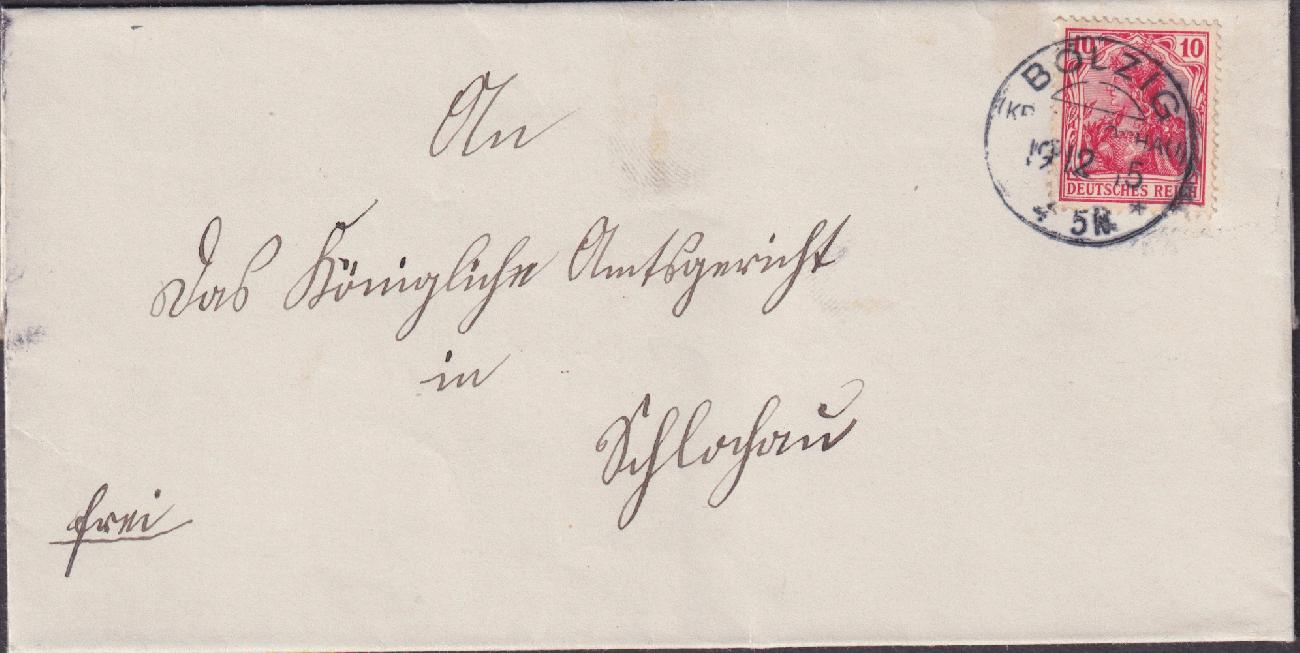 An
Das Königliche Amtsgericht
in
Schlochau
frei
10 10
DEUTSCHES REICH
BÖLZIG
19 12 15
5N. *